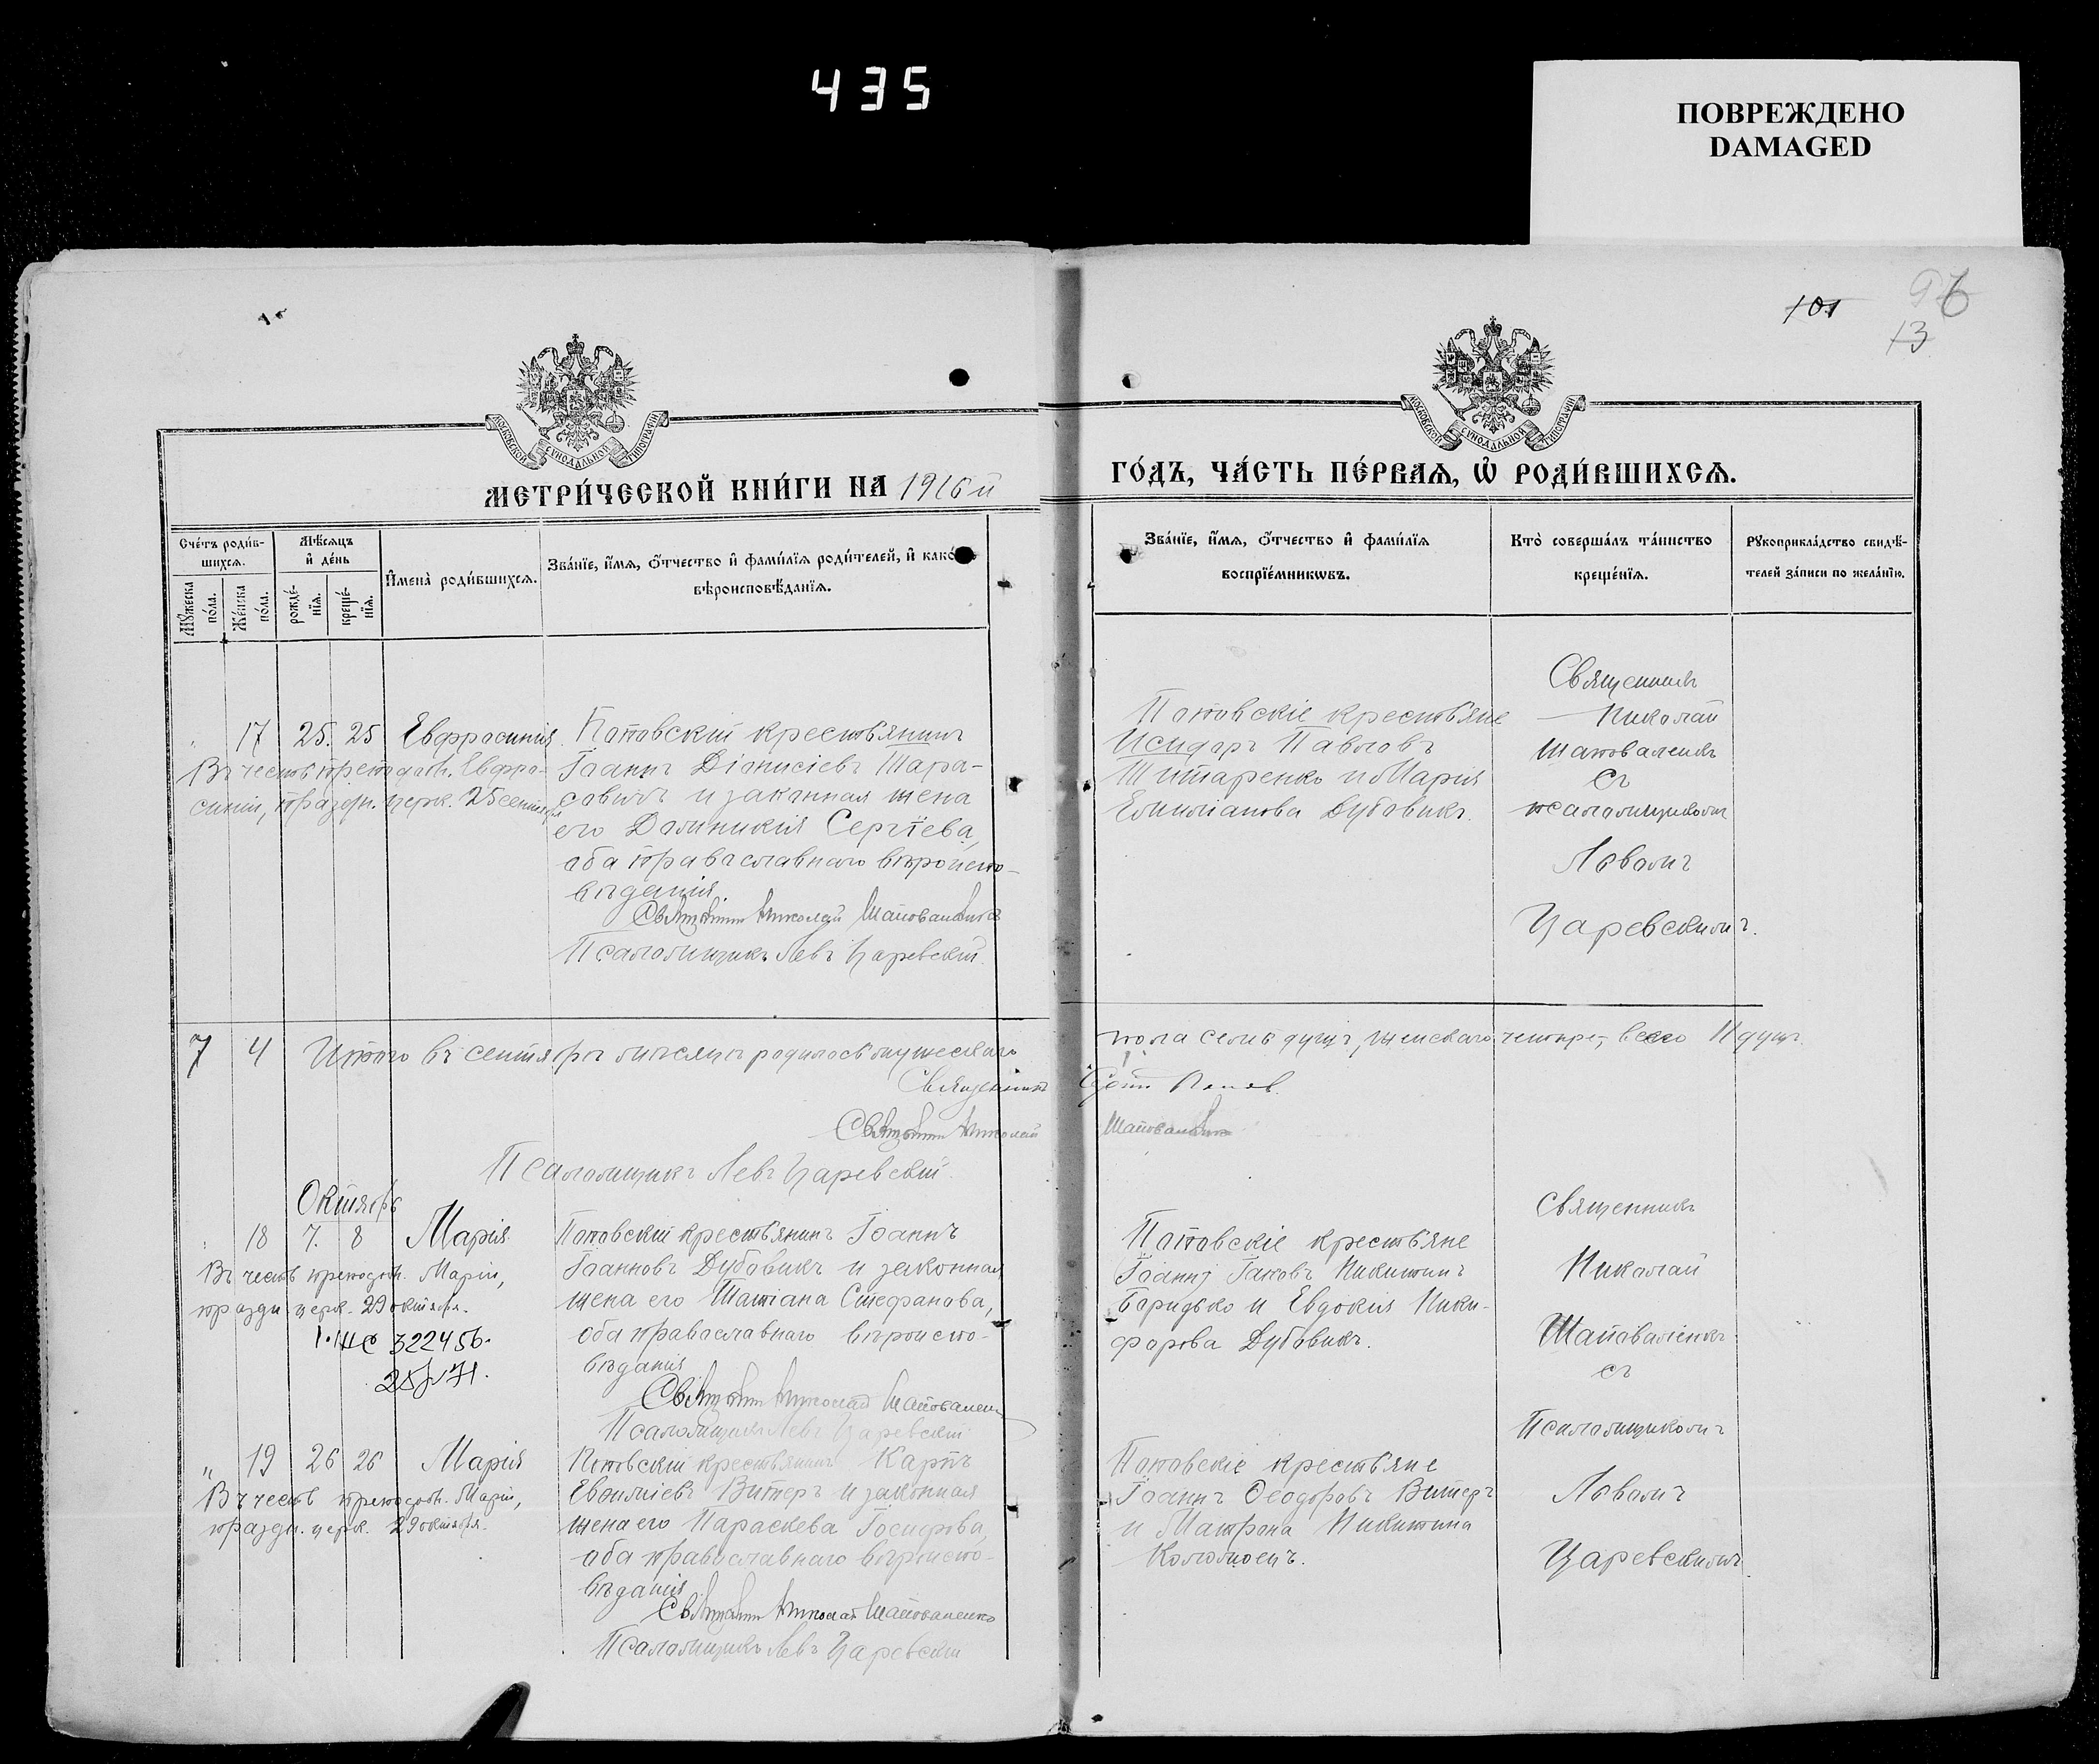 435
ПОВРЕЖДЕНО
DAMAGED
101
96
13
МОСКОВСКОЙ СѴНОДАЛЬНОЙ ТИПОГРАФІИ
МОСКОВСКОЙ СѴНОДАЛЬНОЙ ТИПОГРАФІИ
МЕТРИ́ЧЕСКОЙ КНИ́ГИ НА 1916й
ГО́ДЪ, ЧА́СТЬ ПЕ́РВАѦ, Ѡ҆ РОДИ́ВШИХСѦ.
Сче́тъ роди́в-
шихсѧ.
Мѣ́сѧцъ
и҆ де́нь
Мꙋ́жеска
по́ла.
Же́нска
по́ла.
рожде́-
нїѧ.
креще́-
нїѧ.
И҆мена̀ роди́вшихсѧ.
Зва́нїе, и҆́мѧ, ѻ҆́тчество и҆ фами́лїѧ роди́телей, и҆ како́
вѣроисповѣ́данїѧ.
Зва́нїе, и҆́мѧ, ѻ҆́тчество и҆ фами́лїѧ
воспрїе́мникѡвъ.
Кто̀ соверша́лъ та́инство
креще́нїѧ.
Рꙋкоприкла́дство свидѣ́-
телей за́писи по жела́нїю.
" 17 25. 25 Евфросинія
Въ честь преподоб. Евфро-
синіи, праздн. церк. 25 сентября
Поповскій крестьянинъ
Іоаннъ Діонисіевъ Тара-
совичъ и законная жена
его Домникія Сергіева,
оба православнаго вѣроиспо-
вѣданія.
Священникъ Николай Шаповаленко
Псаломщикъ Левъ Царевскій
Поповскіе крестьяне
Исидоръ Павловъ
Титаренко и Марія
Емиліанова Дубовикъ.
Священникъ
Николай
Шаповаленко
съ
псаломщикомъ
Львомъ
Царевскимъ.
7 4 Итого въ сентябрѣ мѣсяцѣ родилось мужескаго
пола семь душъ, женскаго четыре, всего 11 душъ.
Священникъ
Священникъ Николай
Шаповаленко
Псаломщикъ Левъ Царевскій
Октябрь
" 18 7. 8 Марія
Въ честь преподоб. Маріи,
праздн. церк. 29 октября.
322456.
Поповскій крестьянинъ Іоаннъ
Іоанновъ Дубовикъ и законная
жена его Татіана Стефанова,
оба православнаго вѣроиспо-
вѣданія
Священникъ Николай Шаповаленко
Псаломщикъ Левъ Царевскій
Поповскіе крестьяне
Іаковъ Никитинъ
Боридько и Евдокія Ники-
форова Дубовикъ.
Священникъ
Николай
Шаповаленко
съ
Псаломщикомъ
" 19 26 26 Марія
Въ честь преподоб. Маріи,
праздн. церк. 29 октября.
Поповскій крестьянинъ Карпъ
Евфиміевъ Витеръ и законная
жена его Параскева Іосифова,
оба православнаго вѣроиспо-
вѣданія
Священникъ Николай Шаповаленко
Псаломщикъ Левъ Царевскій
Поповскіе крестьяне
Іоаннъ Ѳеодоровъ Витеръ
и Матрона Никитина
Коломоецъ.
Львомъ
Царевскимъ.